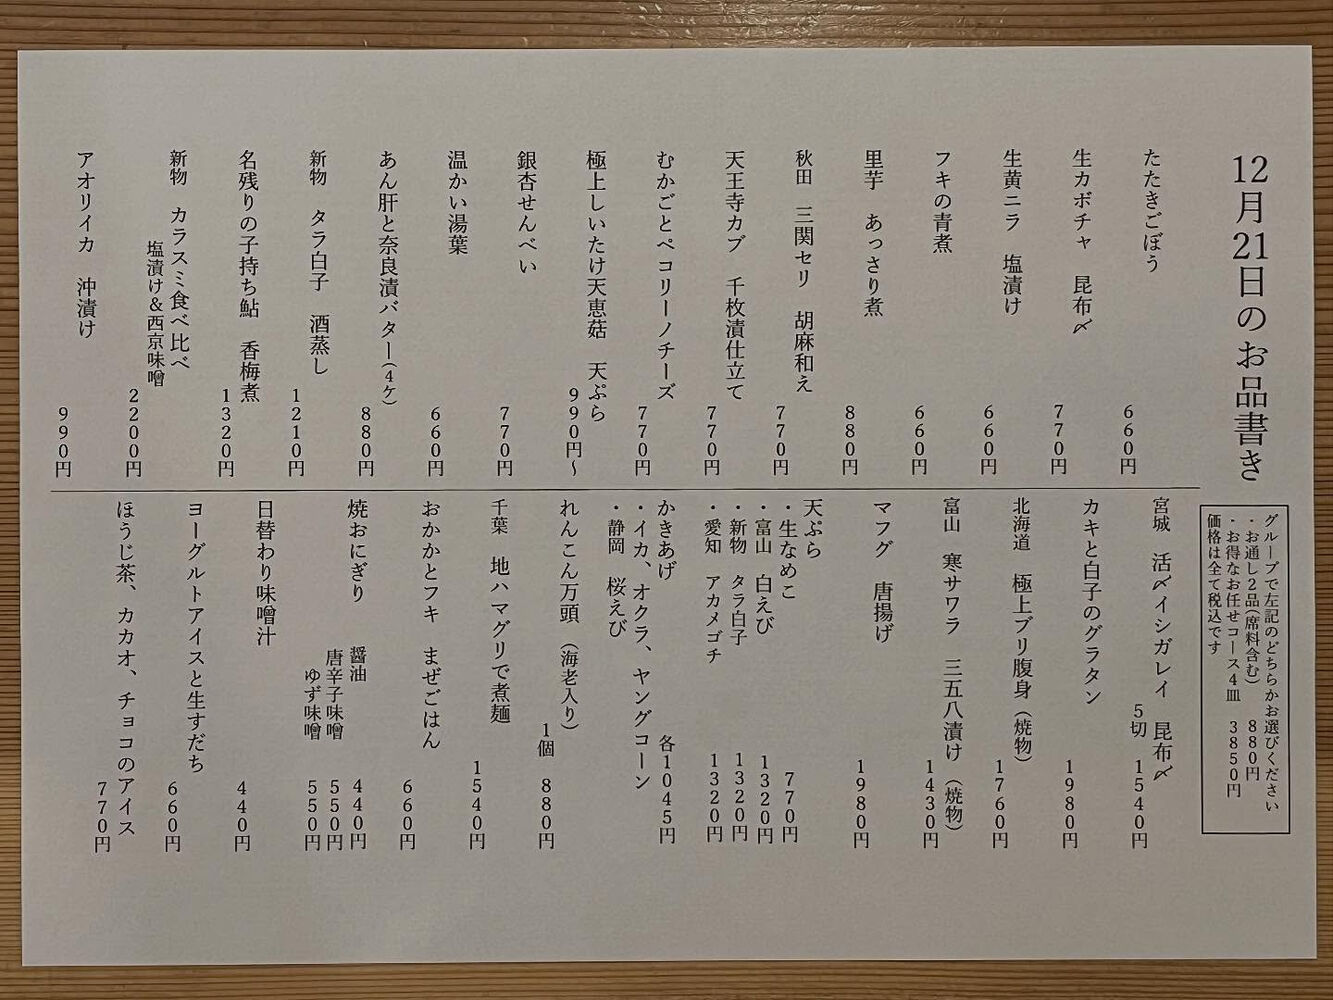 12月21日のお品書き
グループで左記のどちらかお選びください
・お通し2品(席料含む) 880円
・お得なお任せコース4皿 3850円
価格は全て税込です
たたきごぼう 660円
生カボチャ 昆布〆 770円
生黄ニラ 塩漬け 660円
フキの青煮 660円
里芋 あっさり煮 880円
秋田 三関セリ 胡麻和え 770円
天王寺カブ 千枚漬仕立て 770円
むかごとペコリーノチーズ 770円
極上しいたけ天恵菇 天ぷら 990円～
銀杏せんべい 770円
温かい湯葉 660円
あん肝と奈良漬バター(4ケ) 880円
新物 タラ白子 酒蒸し 1210円
名残りの子持ち鮎 香梅煮 1320円
新物 カラスミ食べ比べ
塩漬け&西京味噌 2200円
アオリイカ 沖漬け 990円
宮城 活〆イシガレイ 昆布〆
5切 1540円
カキと白子のグラタン 1980円
北海道 極上ブリ腹身(焼物) 1760円
富山 寒サワラ 三五八漬け(焼物) 1430円
マフグ 唐揚げ 1980円
天ぷら
・生なめこ 770円
・富山 白えび 1320円
・新物 タラ白子 1320円
・愛知 アカメゴチ 1320円
かきあげ 各1045円
・イカ、オクラ、ヤングコーン
・静岡 桜えび
れんこん万頭(海老入り)
1個 880円
千葉 地ハマグリで煮麺 1540円
おかかとフキ まぜごはん 660円
焼おにぎり 醤油 440円
唐辛子味噌 550円
ゆず味噌 550円
日替わり味噌汁 440円
ヨーグルトアイスと生すだち 660円
ほうじ茶、カカオ、チョコのアイス 770円